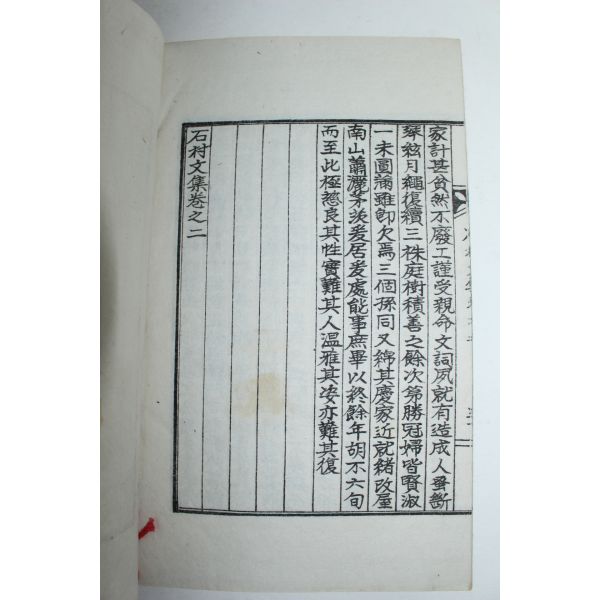 家計甚貧然不廢工謹受親命文詞夙就有造成人蚤斷
琴絃月繩復續三株庭樹積善之餘次第勝冠婦皆賢淑
一未圓滿雖卽欠焉三個孫同又綿其慶家近就緖改屋
南山蕭灑茅茨爰居爰處能事庶畢以終餘年胡不六旬
而至此極慈良其性實難其人溫雅其姿亦難其復
石村文集卷之二